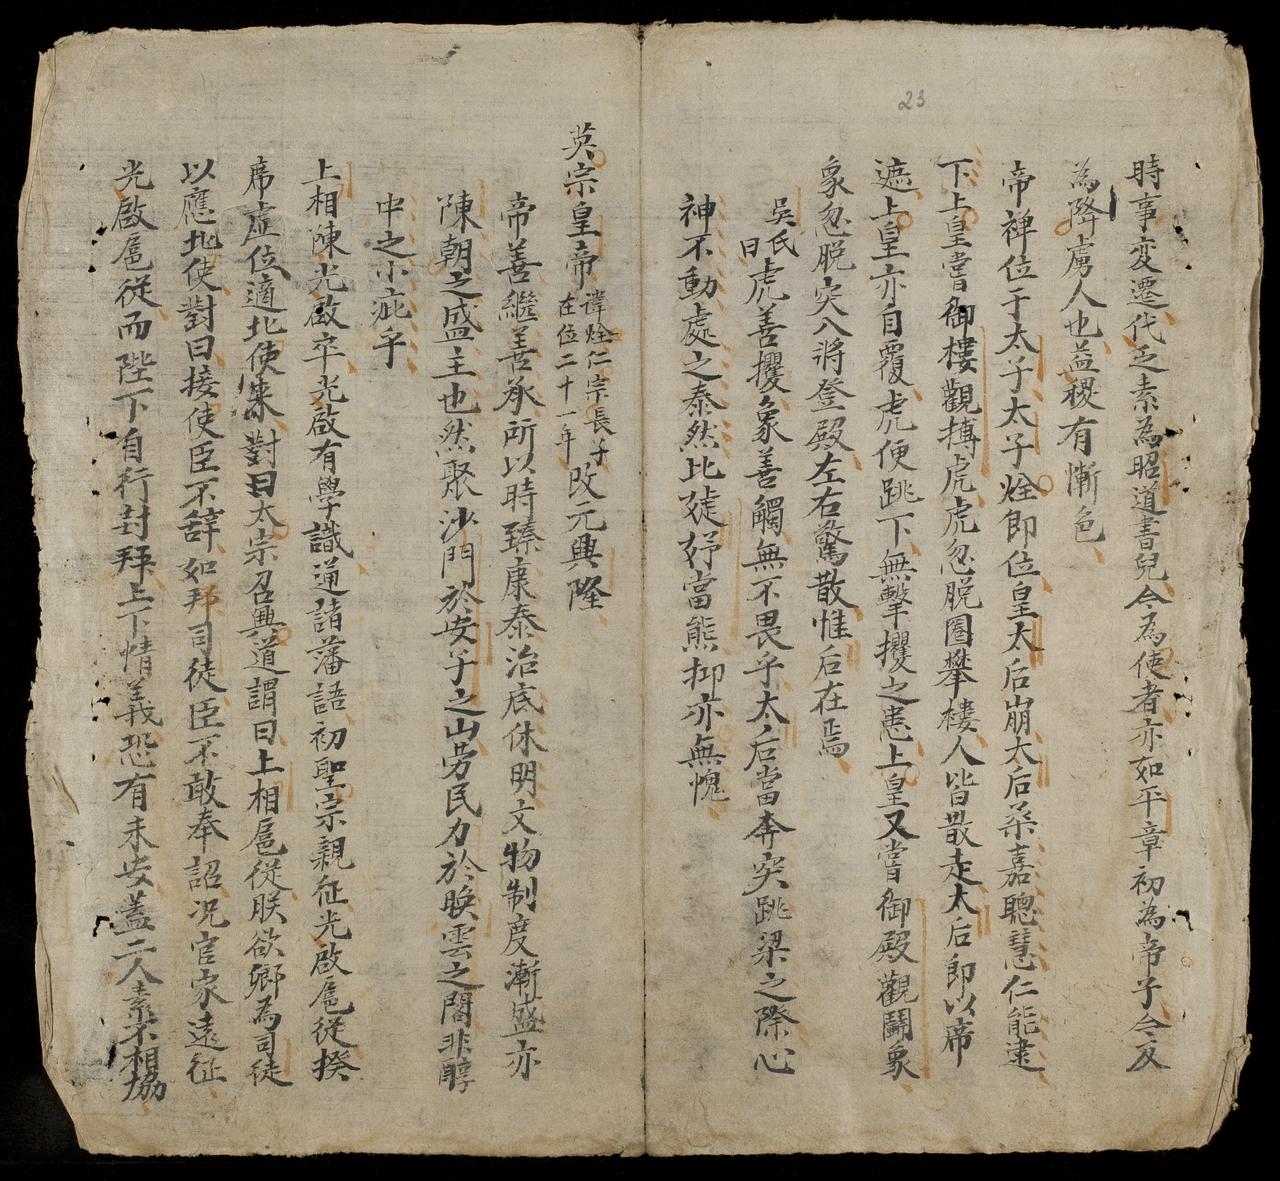 23
時事変遷代乏素為昭道書兒今為使者亦如平章初為帝子今反
為降虜人也益稷有慚色
帝禅位于太子太子烇即位皇太后崩太后柔嘉聰慧仁能逮
下上皇嘗御樓觀搏虎虎忽脱圏攀樓人皆散走太后即以席
遮上皇亦自覆虎便跳下無擊攫之患上皇又嘗御殿觀鬪象
象忽脱突入將登殿左右驚散惟后在焉
吳氏曰虎善攫象善觸無不畏乎太后當奔突跳梁之際心
神不動處之泰然比婕妤當熊抑亦無愧
英宗皇帝 諱烇仁宗長子在位二十一年 改元興隆
帝善繼善承所以時臻康泰治底休明文物制度漸盛亦
陳朝之盛主也然聚沙門於安子之山劳民力於映雲之閣非醇
中之小疵乎
上相陳光啟卒光啟有學識通諸藩語初聖宗親征光啟扈従揆
席虚位適北使来對曰太宗召興道謂曰上相扈従朕欲卿為司徒
以應北使對曰接使臣不辞如拜司徒臣不敢奉詔况官家遠征
光啟扈従而陛下自行封拜上下情義恐有未安蓋二人素不相協